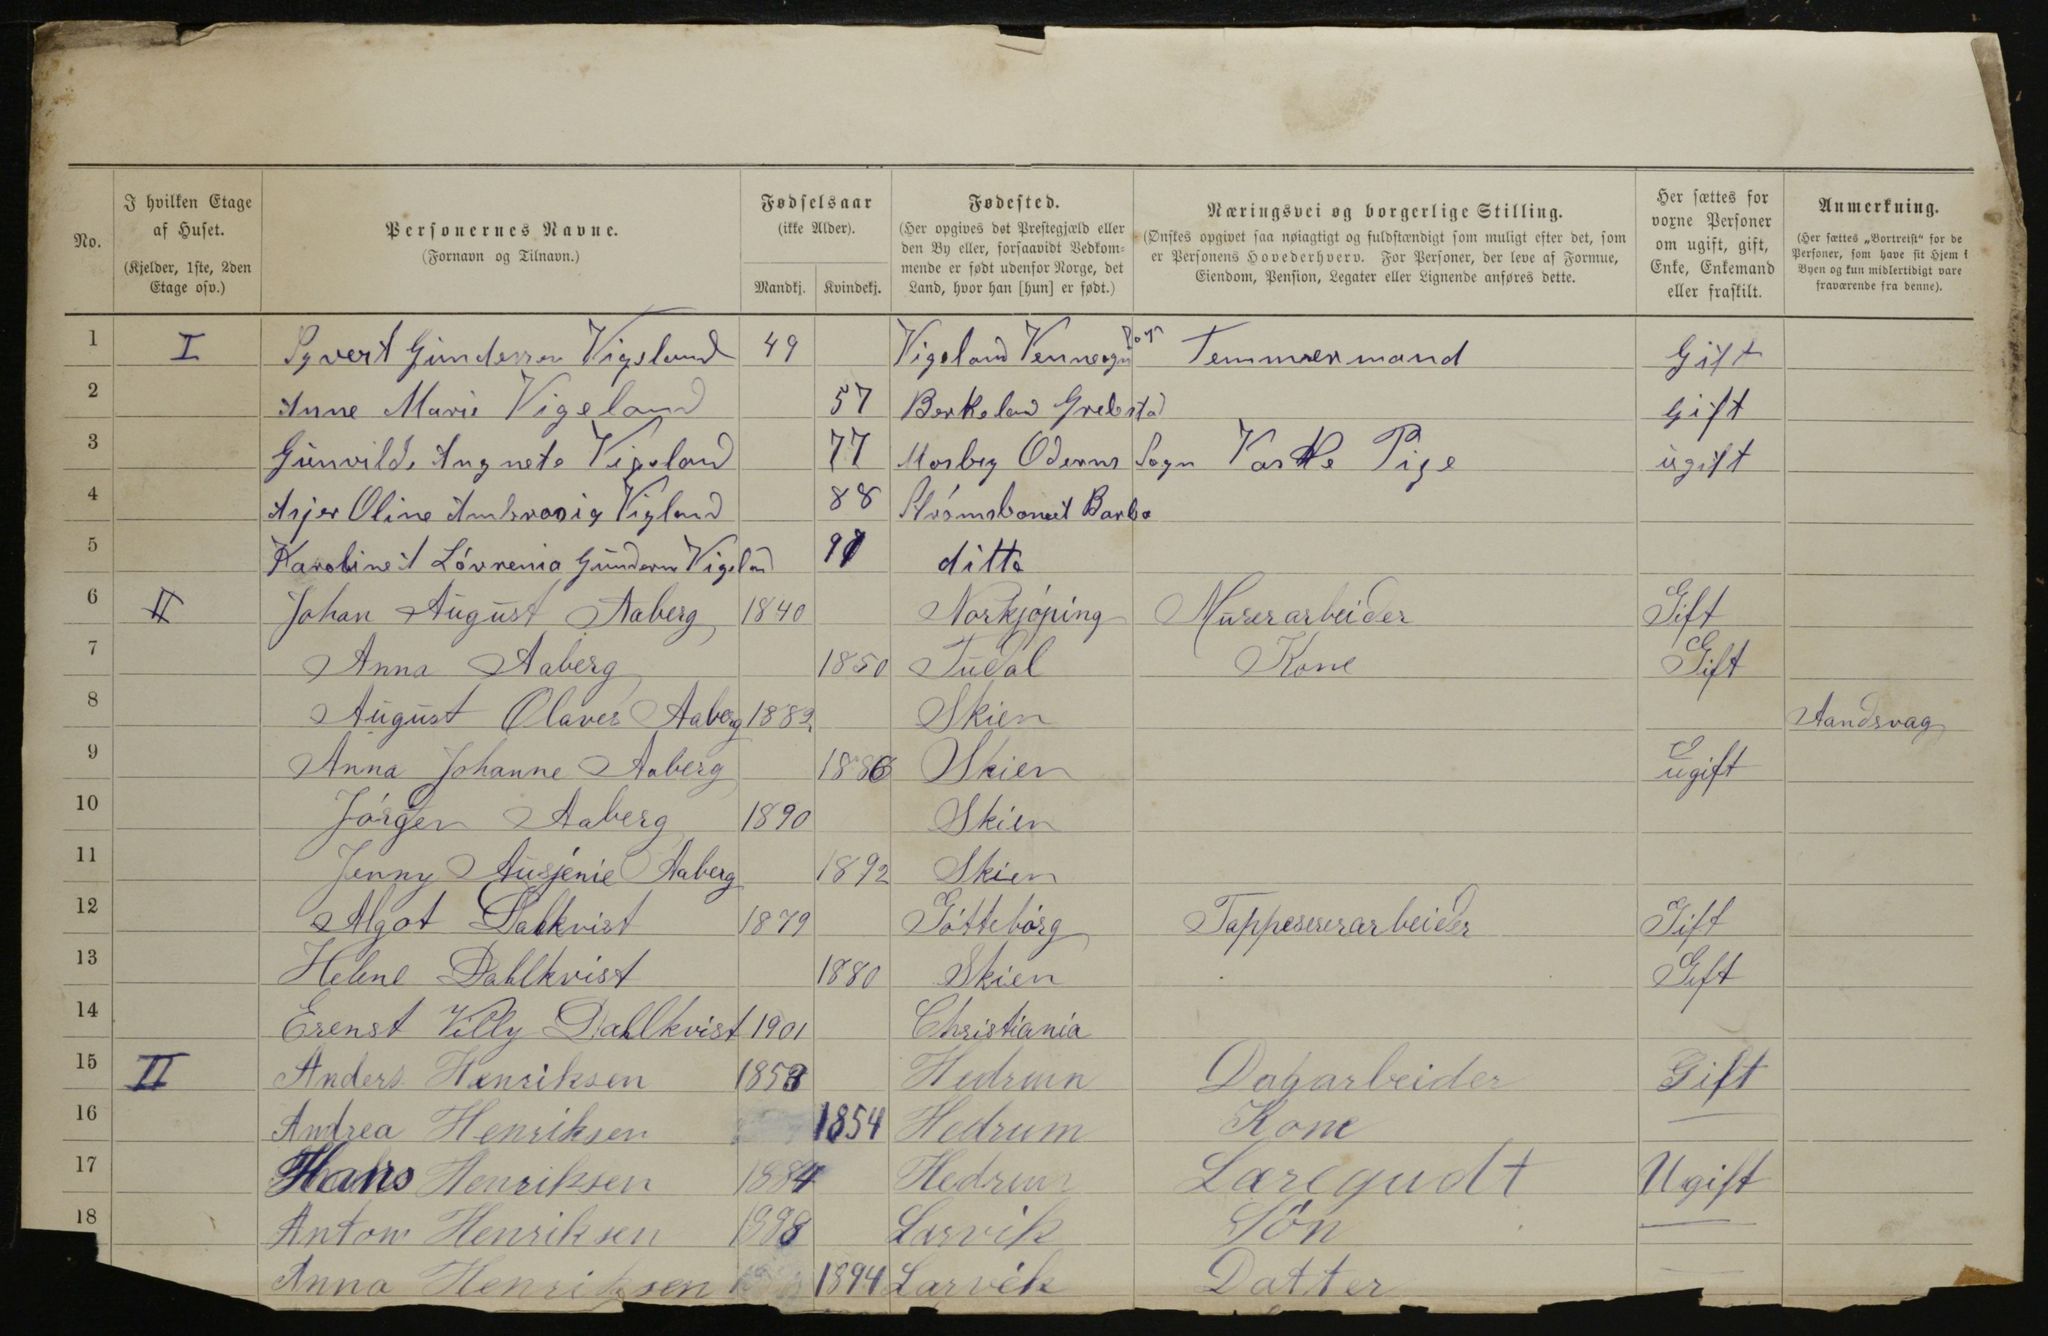 No. | I hvilken Etage af Huset. (Kjelder, 1ste, 2den Etage osv.) | Personernes Navne. (Fornavn og Tilnavn.) | Fødselsaar (ikke Alder). Mandkj. | Kvindekj. | Fødested. (Her opgives det Prestegjæld eller den By eller, forsaavidt Vedkommende er født udenfor Norge, det Land, hvor han [hun] er født.) | Næringsvei og borgerlige Stilling. (Ønskes opgivet saa nøiagtigt og fuldstændigt som muligt efter det, som er Personens Hovederhverv. For Personer, der leve af Formue, Eiendom, Pension, Legater eller Lignende anføres dette.) | Her sættes for voxne Personer om ugift, gift, Enke, Enkemand eller fraskilt. | Anmerkning. (Her sættes „Bortreist“ for de Personer, som have sit Hjem i Byen og kun midlertidigt vare fraværende fra denne).
1 I Syvert Gundersen Vigeland 49 Vigeland Vennesogn Temmermand Gift
2 Anne Marie Vigeland 57 Berkeland Grebstad gift
3 Gunvilde Angnete Vigeland 77 Mosbey Oderns Sogn Vaske Pige ugift
4 Asjer Oline Ambrosia Vigland 88 Strömsboneset Barbo
5 Karoline Lövrenia Gundersen Vigeland 91 ditto
6 II Johan August Aaberg 1840 Norkjöping Murerarbeider Gift
7 Anna Aaberg 1850 Tudal Kone Gift
8 August Olaves Aaberg 1882 Skien Aandsvag
9 Anna Johanne Aaberg 1886 Skien Ugift
10 Jörgen Aaberg 1890 Skien
11 Jenny Ausjenie Aaberg 1892 Skien
12 Algot Dahkvist 1879 Göttebörg Tappesererarbeider Gift
13 Helene Dahlkvist 1880 Skien Gift
14 Erenst Villy Dahlkvist 1901 Christiania
15 II Anders Henriksen 1853 Hedrum Dagarbeider Gift
16 Andrea Henriksen 1854 Hedrum Kone —
17 Hans Henriksen 1884 Hedrum Læregudt Ugift
18 Anton Henriksen 1898 Larvik Sön —
Anna Henriksen 1894 Larvik Datter —